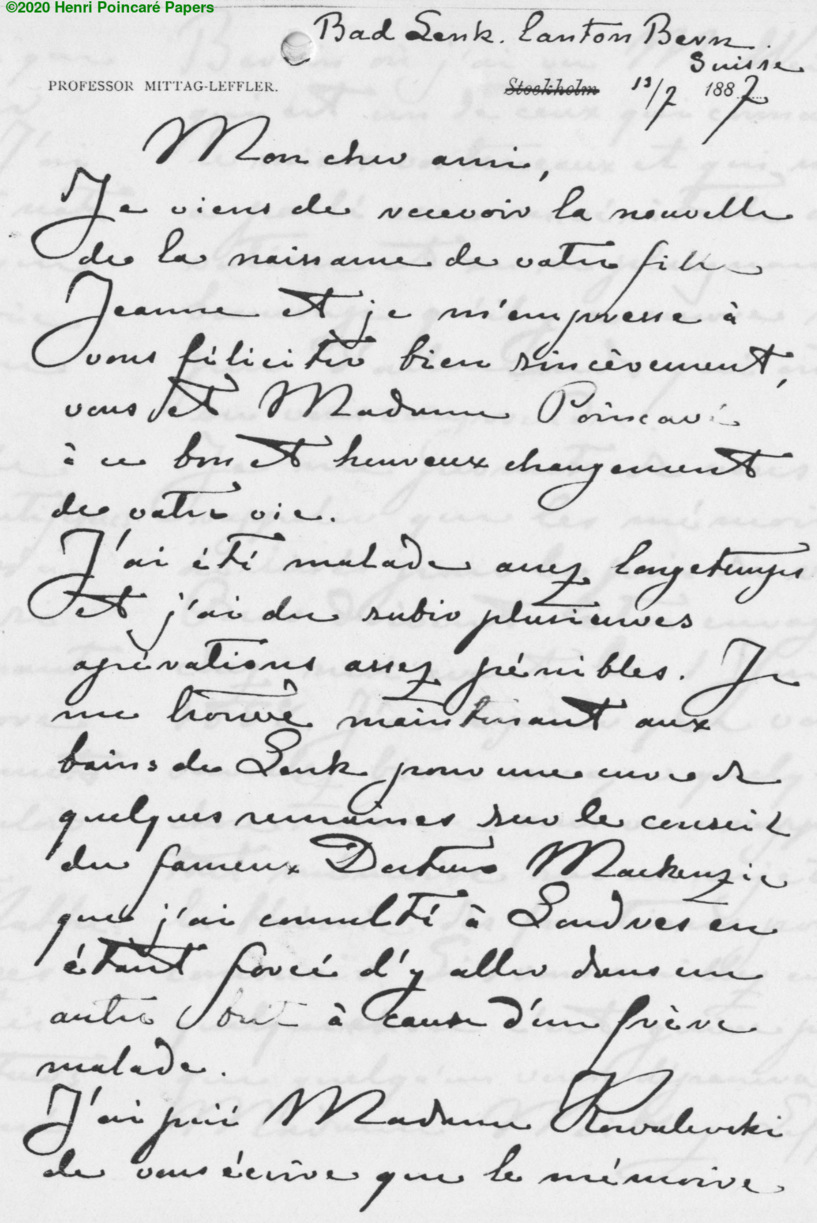 ©2020 Henri Poincaré Papers
Bad Lenk. Canton Bern.
Suisse
PROFESSOR MITTAG-LEFFLER.
Stockholm 13/7 1887
Mon cher ami,
Je viens de recevoir la nouvelle
de la naissance de votre fille
Jeanne et je m'empresse à
vous féliciter bien sincèrement,
vous et Madame Poincaré
à ce bon et heureux changement
de votre vie.
J'ai été malade assez longetemps
et j'ai du subir plusieures
opérations assez pénibles. Je
me trouve maintenant aux
bains de Lenk pour une cure de
quelques semaines sur le conseil
du fameux Docteur Mackenzie
que j'ai consulté à Londres en
étant forcé d'y aller dans un
autre but à cause d'un frère
malade.
J'ai prié Madame Kowalevski
de vous écrire que le mémoire